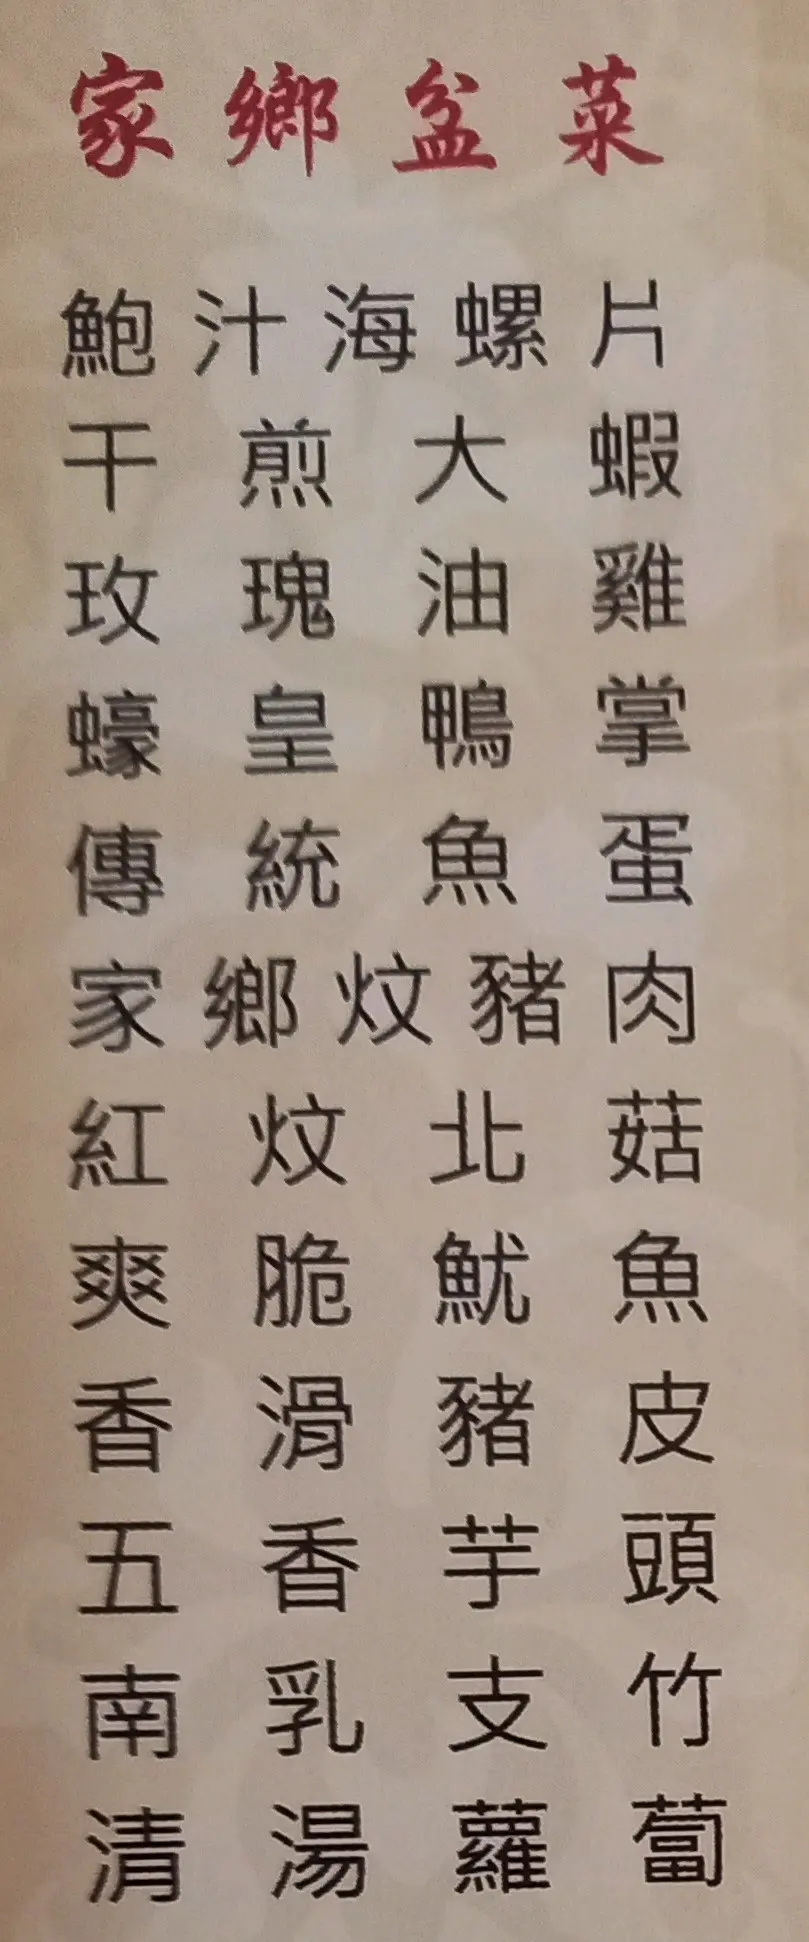 家鄉盆菜
鮑汁海螺片
干煎大蝦
玫瑰油雞
蠔皇鴨掌
傳統魚蛋
家鄉炆豬肉
紅炆北菇
爽脆魷魚
香滑豬皮
五香芋頭
南乳支竹
清湯蘿蔔